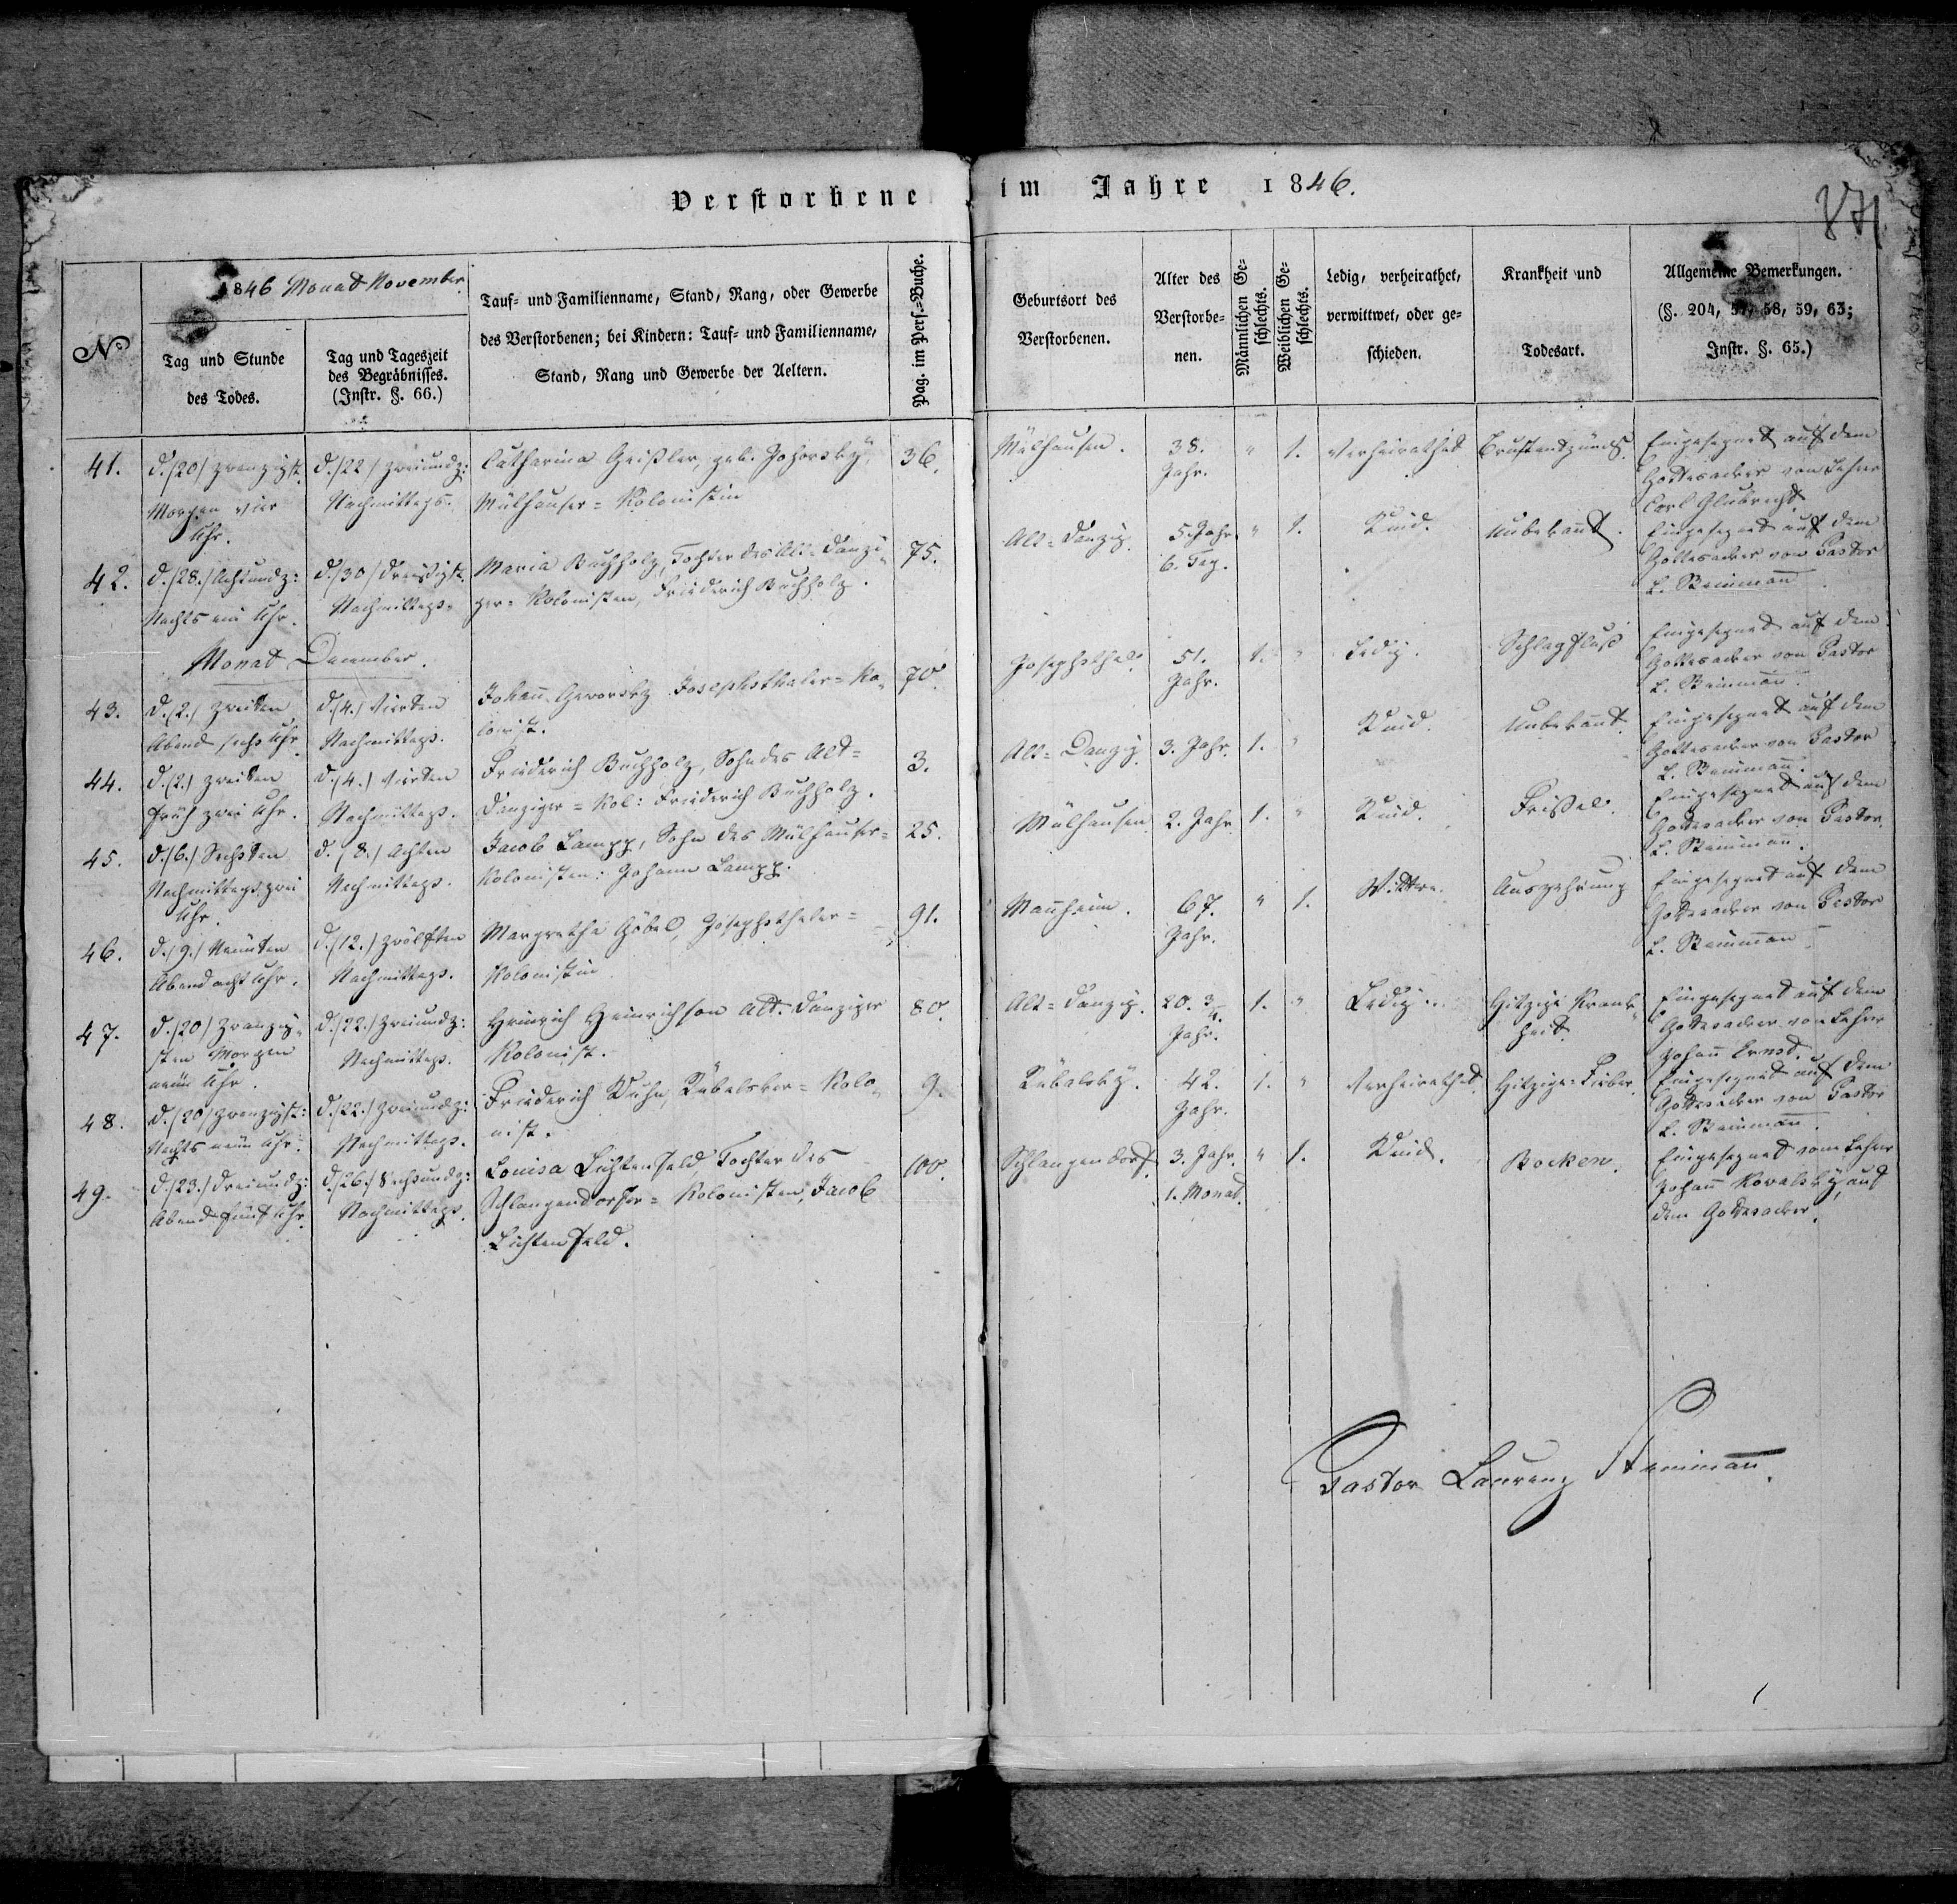 Verstorbene im Jahre 1846.
371
No
1846 Monat November.
Tag und Stunde
des Todes.
Tag und Tageszeit
des Begräbnisses.
(Instr. §. 66.)
Tauf- und Familienname, Stand, Rang, oder Gewerbe
des Verstorbenen; bei Kindern: Tauf- und Familienname,
Stand, Rang und Gewerbe der Aeltern.
Pag. im Pers.-Buche.
Geburtsort des
Verstorbenen.
Alter des
Verstorbe-
nen.
Männlichen Ge-
schlechts.
Weiblichen Ge-
schlechts.
Ledig, verheirathet,
verwittwet, oder ge-
schieden.
Krankheit und
Todesart.
Allgemeine Bemerkungen.
(§. 204, 57, 58, 59, 63;
Instr. §. 65.)
41.
d. (20) zwanzigst.
Morgen vier
Uhr.
d. (22) zweiundz:
Nachmittags.
Catharina Geißler, geb.
Mülhauser = Kolonistin
36.
Mülhausen.
38.
Jahr.
" 1.
Verheirathet
Brustentzünd.
Eingesegnet auf dem
Gottesacker von Lehrer
Carl
42.
d. (28.) Achtundz:
Nachts ein Uhr.
d. (30) Dreißigst.
Nachmittags.
Maria Buchholz, Tochter des Alt-Danzi-
ger = Kolonisten, Friederich Buchholz.
75.
Alt = Danzig.
5. Jahr.
6. Tag.
" 1.
Kind.
Unbekannt.
Eingesegnet auf dem
Gottesacker von Pastor
L. Steinmann
Monat December.
43.
d. (2.) zweiten
Abend sechs Uhr
d. (4.) Vierten
Nachmittags.
Johann Josephsthaler = Ko-
lonist.
70.
Josephsthal.
51.
Jahr.
1. "
Ledig.
Schlagfluß
Eingesegnet auf dem
Gottesacker von Pastor
L. Steinmann.
44.
d. (2.) zweiten
Früh zwei Uhr.
d. (4.) Vierten
Nachmittags.
Friederich Buchholz, Sohn des Alt =
Danziger = Kol: Friederich Buchholz.
3.
Alt = Danzig.
3. Jahr.
1. "
Kind.
Unbekannt.
Eingesegnet auf dem
Gottesacker von Pastor
L. Steinmann.
45.
d. (6.) Sechsten
Nachmittags zwei
Uhr.
d. (8.) Achten
Nachmittags.
Jacob Lampp, Sohn des Mülhauser =
Kolonisten: Johann Lampp.
25.
Mülhausen
2. Jahr
1. "
Kind.
Eingesegnet auf dem
Gottesacker von Pastor
L. Steinmann.
46.
d. (9.) Neunten
Abend acht Uhr.
d. (12.) zwölften
Nachmittags.
Margretha Göbel, Josephsthaler =
Kolonistin
91.
Mannheim.
67.
Jahr.
" 1.
Wittwe.
Auszehrung
Eingesegnet auf dem
Gottesacker von Pastor
L. Steinmann
47.
d. (20) zwanzig-
sten Morgen
neun Uhr.
d. (22.) zweiundz:
Nachmittags.
Heinrich Heinrichson Alt-Danziger
Kolonist.
80.
Alt = Danzig.
20. 3/4.
Jahr.
1. "
Ledig.
Hitzige Krank-
heit.
Eingesegnet auf dem
Gottesacker von Lehrer
Johann Ernst.
48.
d. (20) zwanzigst:
Nachts neun Uhr.
d. (22.) zweiundz:
Nachmittags.
Friederich Kuhn, = Kolo-
nist.
9.
42.
Jahr.
1. "
Verheirathet
Hitzige-Fieber
Eingesegnet auf dem
Gottesacker von Pastor
L. Steinmann.
49.
d. (23.) Dreiundz:
Abend fünf Uhr.
d. (26.) Sechsundz:
Nachmittags.
Louisa Lichtenfeld Tochter des
Schlangendorfer = Kolonisten, Jacob
Lichtenfeld.
100.
Schlangendorf.
3. Jahr.
1. Monat.
" 1.
Kind.
Pocken.
Eingesegnet vom Lehrer
Johann Kowalsky, auf
dem Gottesacker.
Pastor Laurenz Steinmann.